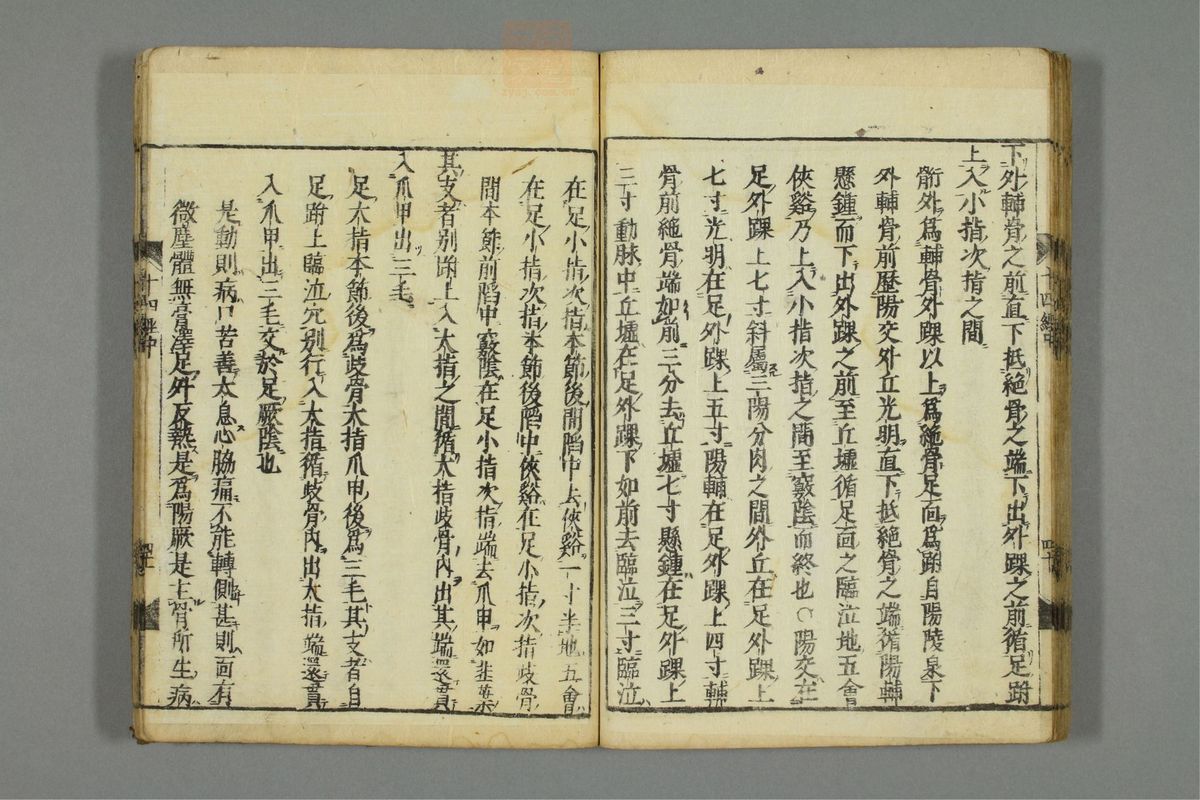 下外輔骨之前直下抵絶骨之端下出外踝之前循足跗
上入小指次指之間
䯒外爲輔骨外踝以上爲絶骨足面爲跗自陽陵泉下
外輔骨前歷陽交外丘光明直下抵絶骨之端循陽輔
懸鍾而下出外踝之前至丘墟循足面之臨泣地五會
俠谿乃上入小指次指之間至竅陰而終也○陽交在
足外踝上七寸斜屬三陽分肉之間外丘在足外踝上
七寸光明在足外踝上五寸陽輔在足外踝上四寸輔
骨前絶骨端如前三分去丘墟七寸懸鍾在足外踝上
三寸動脉中丘墟在足外踝下如前去臨泣三寸臨泣
十四經中
在足小指次指本節後間陷中去俠谿一寸半地五會
在足小指次指本節後陷中俠谿在足小指次指歧骨
間本節前陷中竅陰在足小指次指端去爪甲如韭葉
其支者別跗上入大指之間循大指歧骨內出其端還貫
入爪甲出三毛
足大指本節後爲歧骨大指爪甲後爲三毛其支者自
足跗上臨泣穴別行入大指循歧骨內出大指端還貫
入爪甲出三毛交於足厥陰也
是動則病口苦善太息心脇痛不能轉側甚則面有
微塵體無膏澤足外反熱是爲陽厥是主骨所生病
十四經中